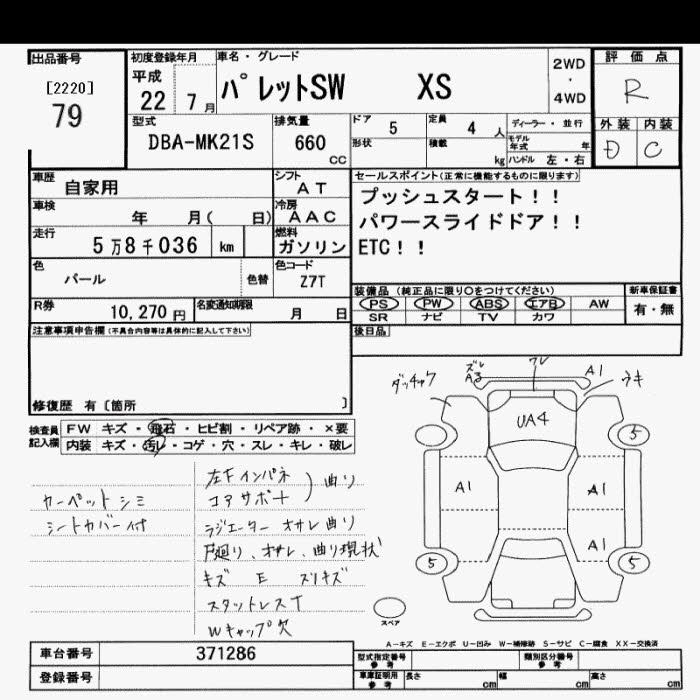 出品番号
[2220]
79
初度登録年月
平成
22 7月
車名・グレード
パレットSW XS
2WD
・
4WD
評価点
R
外装 内装
D C
型式
DBA-MK21S
排気量
660
CC
ドア 5
定員 4 人
形状
積載 kg
ディーラー・並行
モデル年式 年
ハンドル 左・右
車歴 自家用
シフト AT
車検 年 月( 日)
冷房 AAC
走行 5万8千036 km
燃料 ガソリン
色 パール 色替
色コード Z7T
R券 10,270円
名変通知期限 月 日
セールスポイント(正常に機能するものに限ります)
プッシュスタート!!
パワースライドドア!!
ETC!!
装備品(純正品に限り○をつけてください)
PS PW ABS エアB AW
SR ナビ TV カワ
新車保証書
有・無
後日品
注意事項申告欄(不具合内容等は具体的に記入して下さい)
修復歴 有〔箇所 〕
検査員記入欄
FW キズ・飛石・ヒビ割・リペア跡・×要
内装 キズ・汚レ・コゲ・穴・スレ・キレ・破レ
カーペットシミ
シートカバー付
左F インパネ
コアサポート
曲り
ラジエーター オサレ曲り
戸廻り、オサレ、曲り現状
キズ E スリキズ
スタットレスT
Wキャップ欠
ダッチャク
ズレ
A3
ワレ
A1
ウキ
UA4
5
A1
A1
A1
5
5
スペア
A-キズ E-エクボ U-凹み W-補修跡 S-サビ C-腐食 XX-交換済
車台番号 371286
登録番号
型式指定番号
参考
類別区分番号
参考
車庫証明用
参考
長さ cm
幅 cm
高さ cm